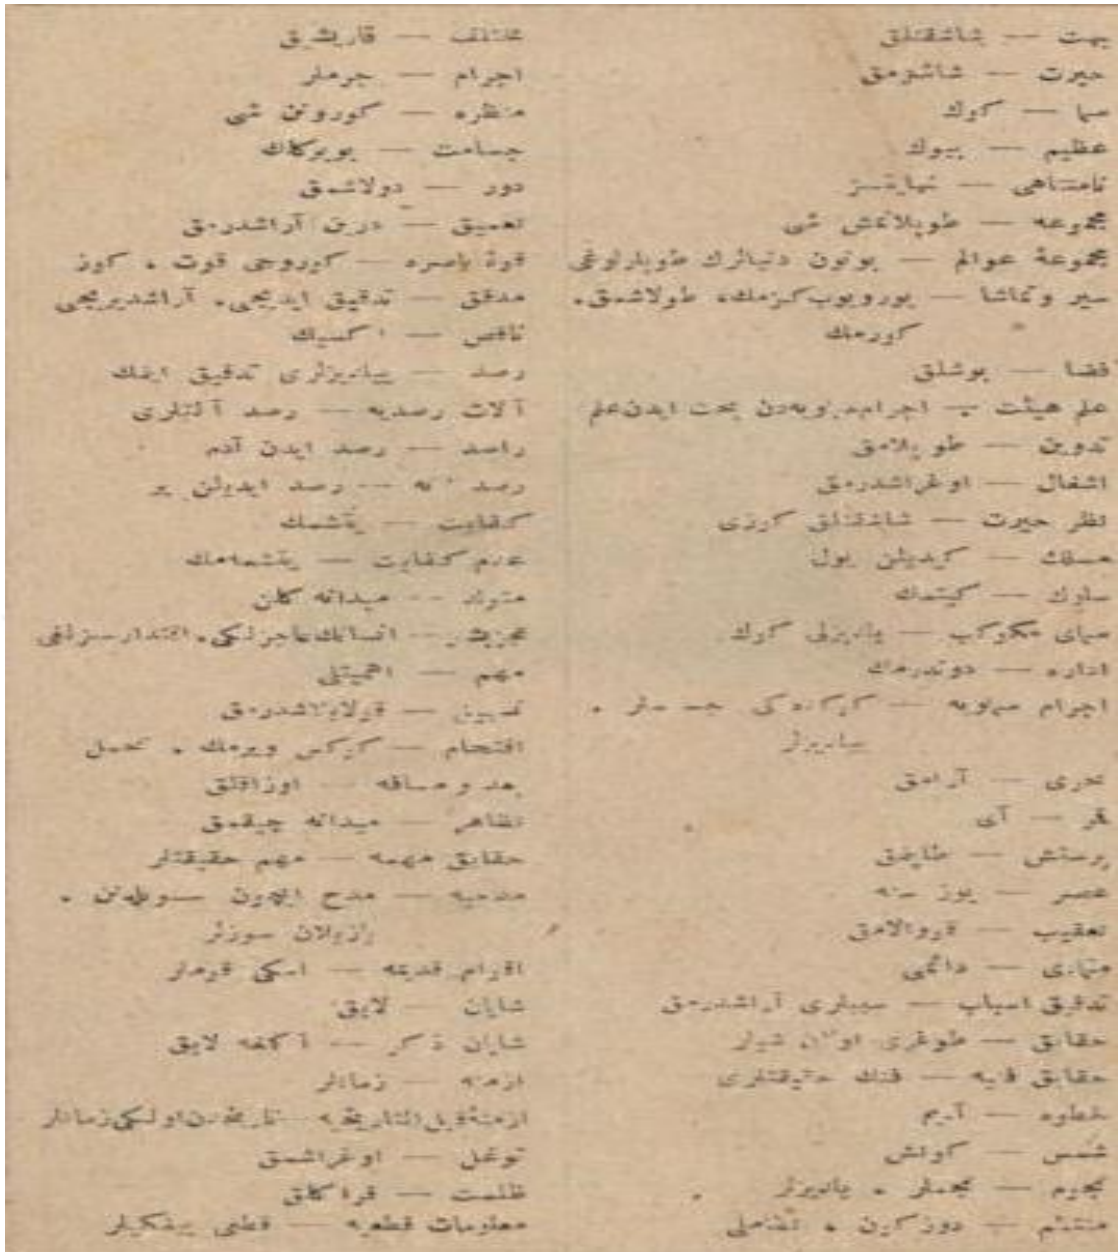 بهت — شاشقنلق
حيرت — شاشيرمق
سما — كوك
عظيم — بيوك
نامتناهى — نهايتسز
مجموعه — طوپلانمش شى
مجموعۀ عوالم — بوتون دنيالرك طوپلولوغى
سير وتماشا — يورويوب كزمك، طولاشمق،
كورمك
فضا — بوشلق
علم هيئت — اجرام سماويه‌دن بحث ايدن علم
تدوين — طوپلامق
اشغال — اوغراشدرمق
نظر حيرت — شاشقنلق كوزى
مسلك — كيديلن يول
سلوك — كيتمك
سماى مكوكب — ييلديزلى كوك
اداره — دوندرمك
اجرام سماويه — كوكده‌كى جسملر ،
ييلديزلر
تحرى — آرامق
قمر — آى
پرستش — طاپمق
عصر — يوز سنه
تعقيب — قووالامق
متمادى — دائمى
تدقيق اسباب — سببلرى آراشدرمق
حقايق — طوغرى اولان شيلر
حقايق فنيه — فنك حقيقتلرى
خطوه — آديم
شمس — كونش
نجوم — نجملر ، ييلديزلر
منتظم — دوزكون ، نظاملى
مختلف — قاريشيق
اجرام — جرملر
منظره — كورونن شى
جسامت — بويوكلك
دور — دولاشمق
تعميق — درين آراشدرمق
قوۀ باصره — كوروجى قوت ، كوز
مدقق — تدقيق ايديجى، آراشديريجى
ناقص — اكسيك
رصد — ييلديزلرى تدقيق ايتمك
آلات رصديه — رصد آلتلرى
راصد — رصد ايدن آدم
رصدخانه — رصد ايديلن ير
كفايت — يتشمك
عدم كفايت — يتشمه‌مك
متولد — ميدانه كلن
عجز بشر — انسانك عاجزلكى، اقتدارسزلغى
مهم — اهميتلى
تسهيل — قولايلاشدرمق
اقتحام — كوكس ويرمك ، تحمل
بعد و مسافه — اوزاقلق
تظاهر — ميدانه چيقمق
حقايق مهمه — مهم حقيقتلر
مدحيه — مدح ايچون سويلنن ،
يازيلان سوزلر
اقوام قديمه — اسكى قوملر
شايان — لايق
شايان ذكر — آكلمغه لايق
ازمنه — زمانلر
ازمنۀ قبل التاريخيه — تاريخدن اولكى زمانلر
توغل — اوغراشمق
ظلمت — قراكلق
معلومات قطعيه — قطعى بيلكيلر